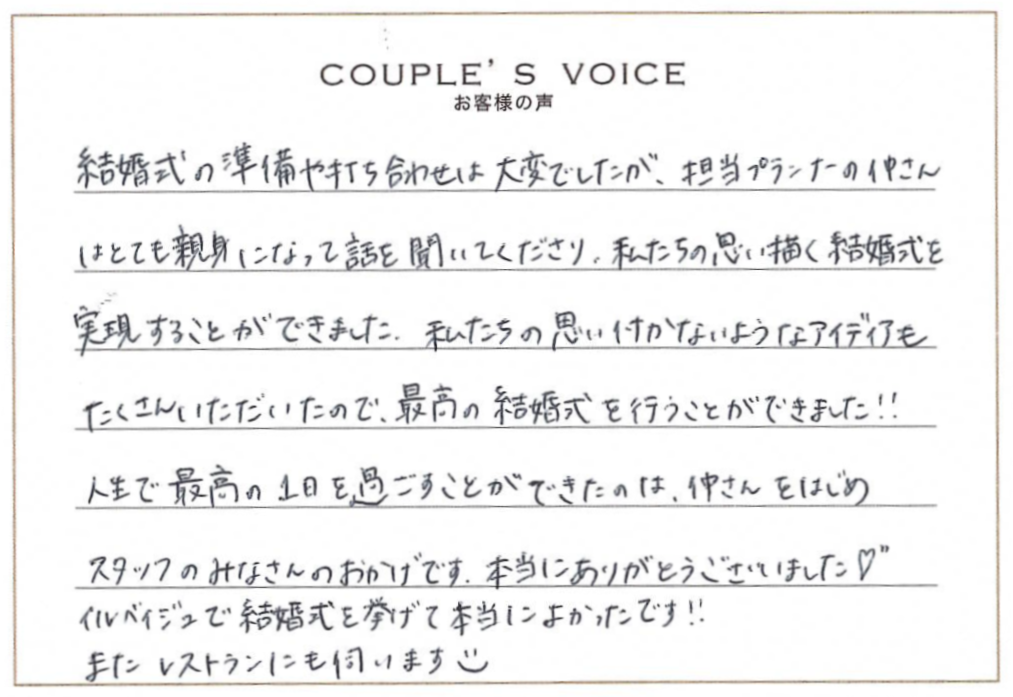 COUPLE'S VOICE
お客様の声
結婚式の準備や打ち合わせは大変でしたが、担当プランナーの仲さん
はとても親身になって話を聞いてくださり、私たちの思い描く結婚式を
実現することができました。私たちの思い付かないようなアイディアも
たくさんいただいたので、最高の結婚式を行うことができました!!
人生で最高の1日を過ごすことができたのは、仲さんをはじめ
スタッフのみなさんのおかげです。本当にありがとうございました♡"
イルベイジュで結婚式を挙げて本当によかったです!!
またレストランにも伺います